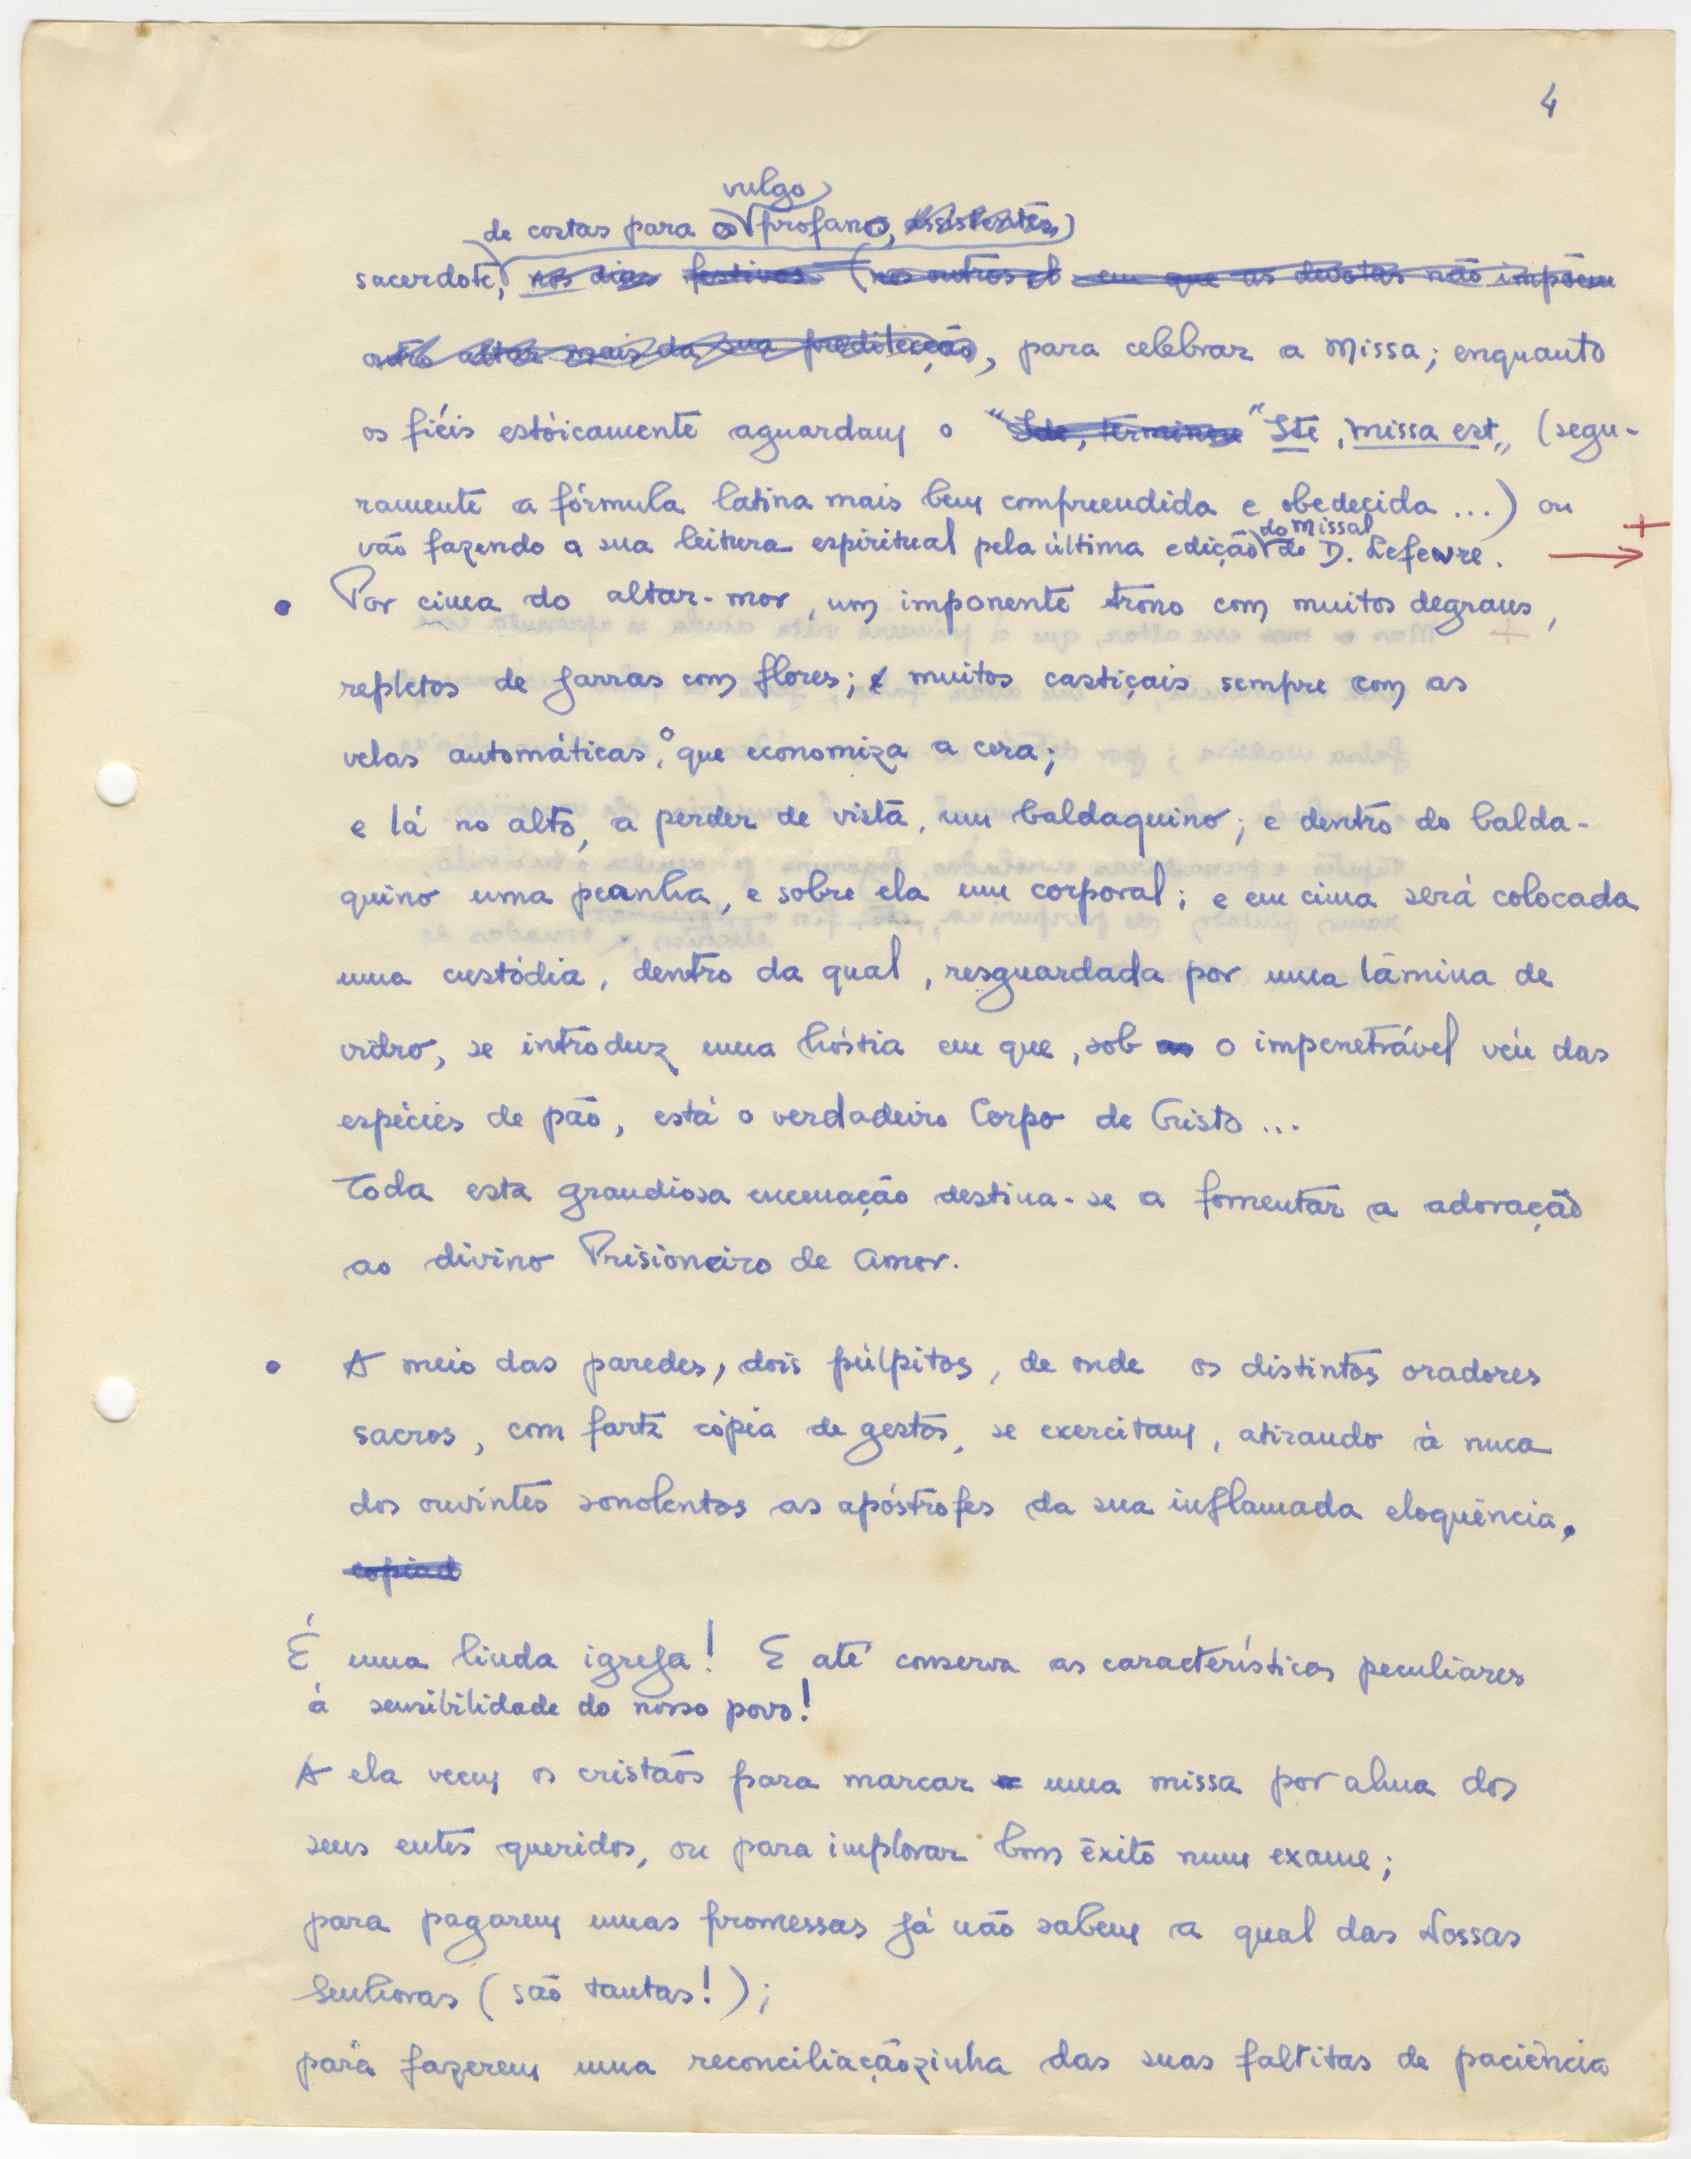 4
vulgo
de costas para o profano, assistentes,
sacerdote, nos dias festivos (nos outros em que as devotas não impõem
outro altar mais da sua predilecção), para celebrar a Missa; enquanto
os fiéis estòicamente aguardam o "Ide, terminou" "Ite, missa est" (segu-
ramente a fórmula latina mais bem compreendida e obedecida ...) ou
do Missal +
vão fazendo a sua leitura espiritual pela última edição de D. Lefevre. →
• Por cima do altar-mor, um imponente trono com muitos degraus,
repletos de jarras com flores; e muitos castiçais sempre com as
velas automáticas, o que economiza a cera;
e lá no alto, a perder de vista, um baldaquino; e dentro do balda-
quino uma peanha, e sobre ela um corporal; e em cima será colocada
uma custódia, dentro da qual, resguardada por uma lâmina de
vidro, se introduz uma hóstia em que, sob as o impenetrável véu das
espécies de pão, está o verdadeiro Corpo de Cristo ...
Toda esta grandiosa encenação destina-se a fomentar a adoração
ao divino Prisioneiro de Amor.
• A meio das paredes, dois púlpitos, de onde os distintos oradores
sacros, com farta cópia de gestos, se exercitam, atirando à nuca
dos ouvintes sonolentos as apóstrofes da sua inflamada eloquência.
copiad
É uma linda igreja! E até conserva as características peculiares
à sensibilidade do nosso povo!
A ela vem os cristãos para marcar uma missa por alma dos
seus entes queridos, ou para implorar bom êxito num exame;
para pagarem umas promessas já não sabem a qual das Nossas
Senhoras (são tantas!);
para fazerem uma reconciliaçãozinha das suas faltitas de paciência